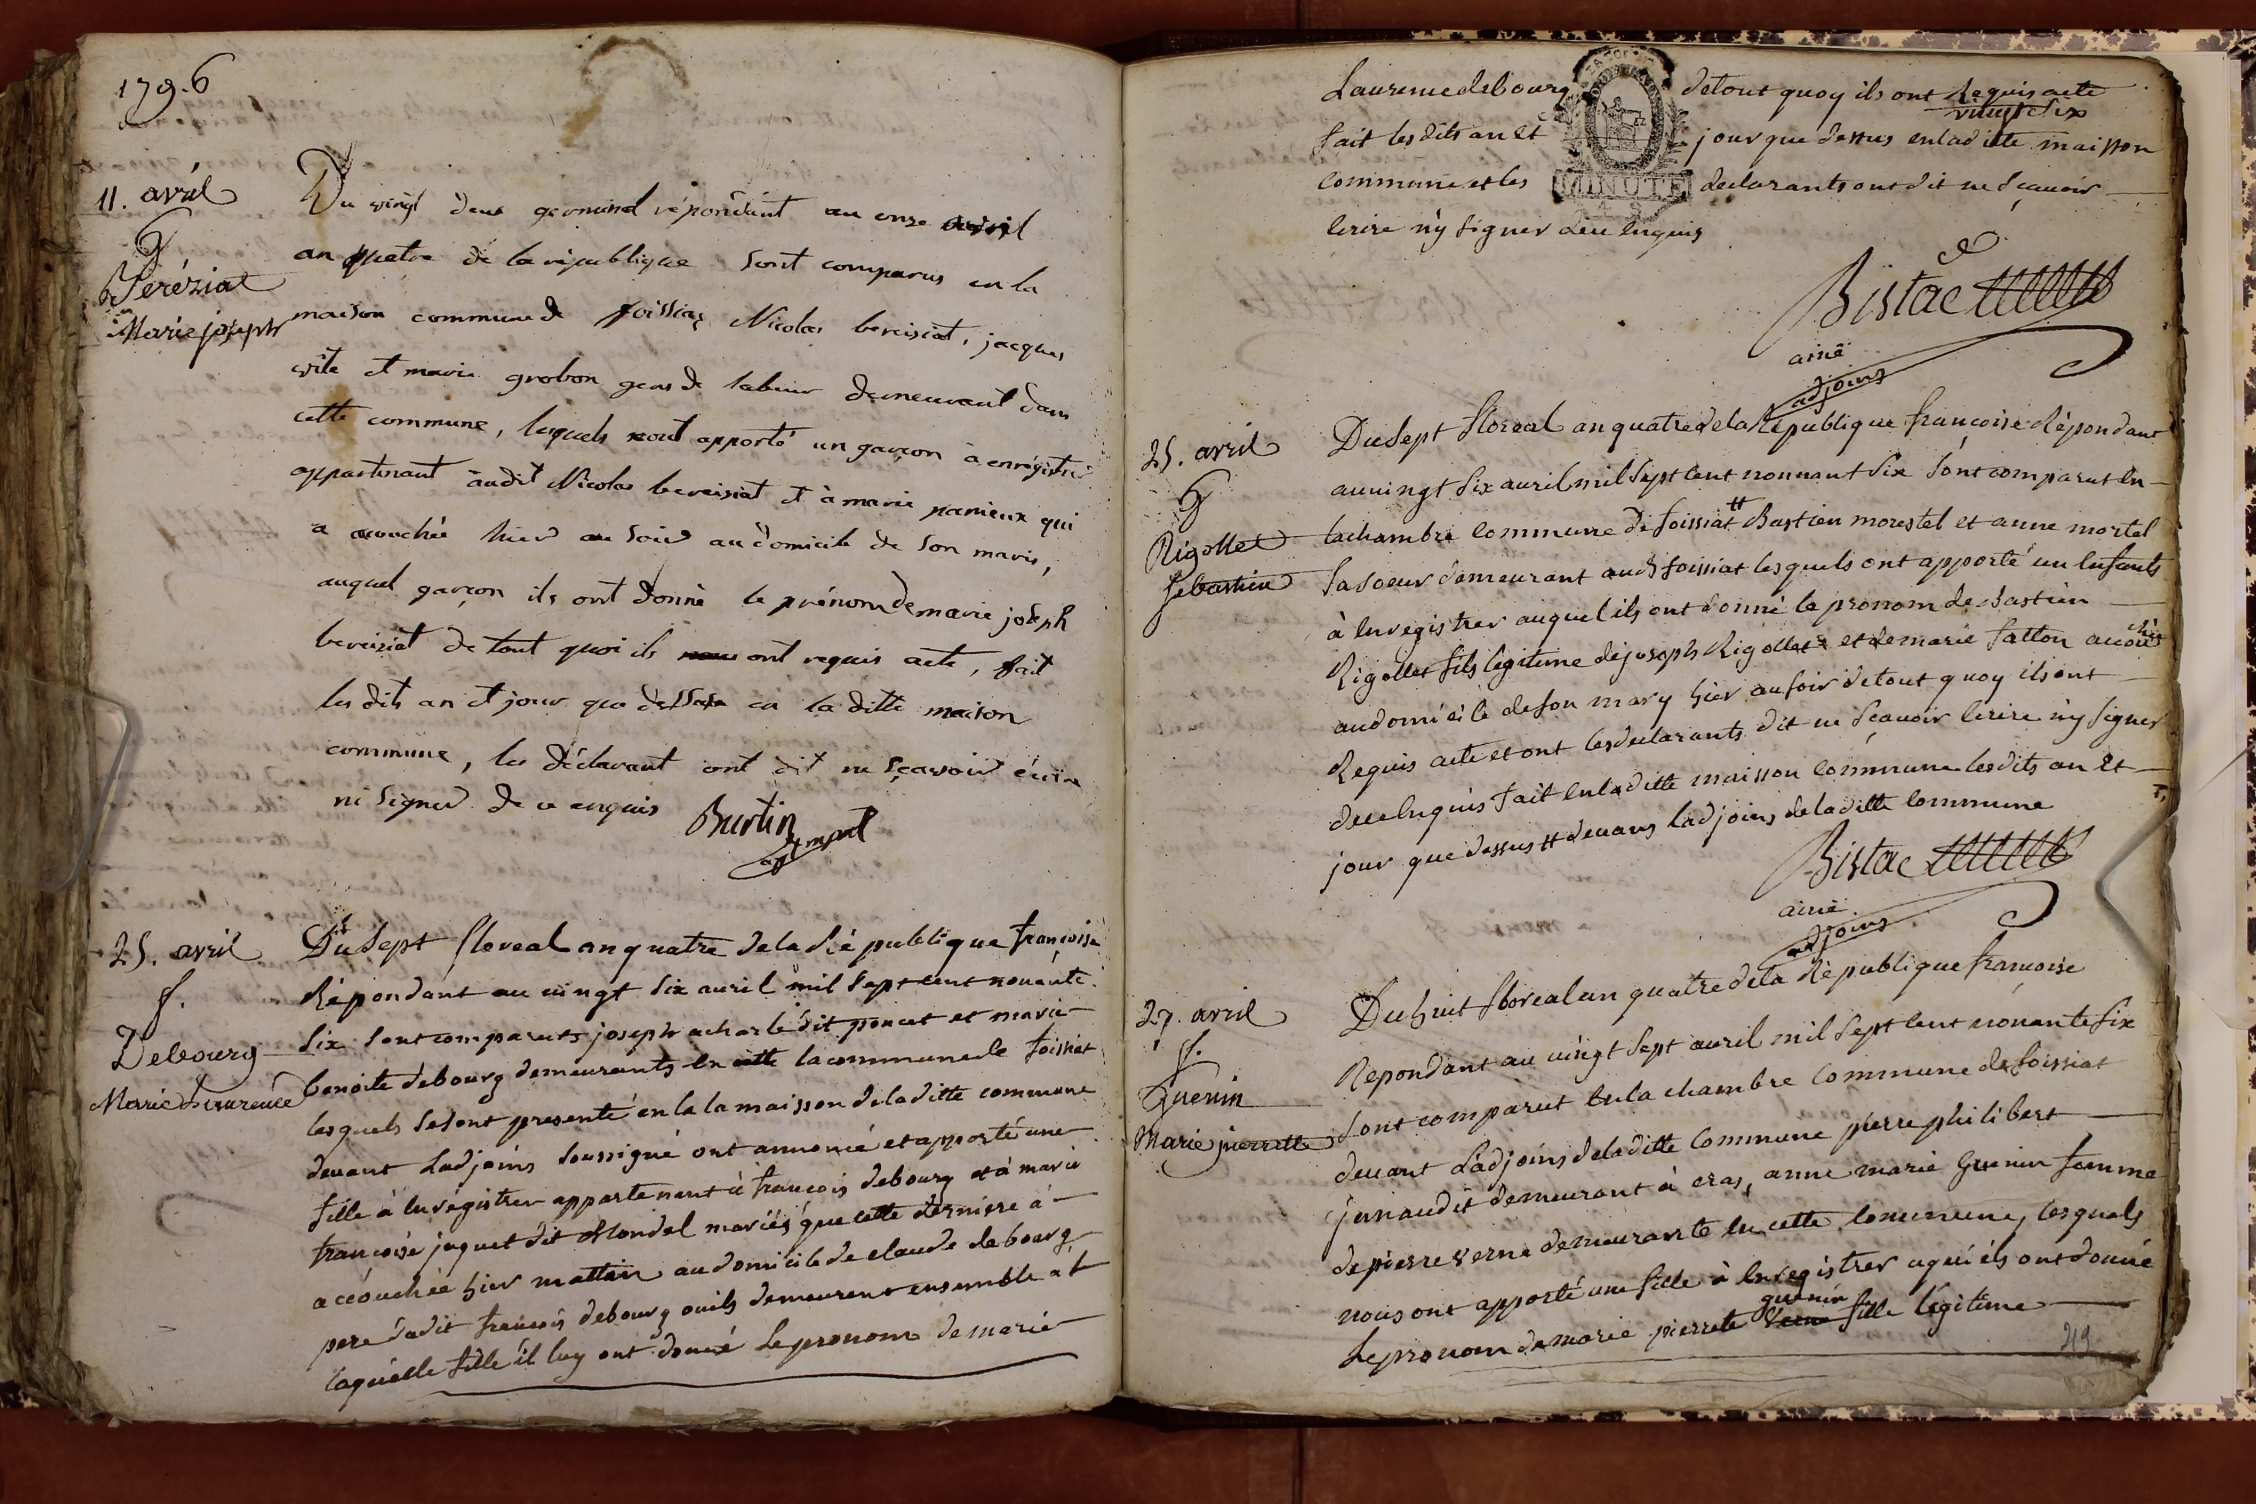 1796
11. avril
G
Peréziat
Marie joseph
Du vingt deux germinal répondant au onze avril
an quatre de la république sont comparus en la
maison commune de foissiat Nicolas bereisiat, jacques
vite et marie grobon gens de labeur demeurant dans
cette commune, lesquels nout apporté un garçon a enrégistrer
appartenant audit Nicolas bereisiat et à marie panieux qui
a acouchée hier au soir au domicile de son maris,
auquel garçon ils ont donné le prénom de marie joseph
bereisiat de tout quoi ils ont requis acte, fait
les dits an et jour que dessus en la ditte maison
commune, les déclarant ont dit ne sçavoir écrire
ni signer de ce enquis
Burtin
agt mpal
25. avril
f.
Debourg
Marie Laurence
Du Sept floreal an quatre de la Ré publique françoise
Répondant au vingt six avril mil sept cent nonante
six sont comparuts joseph acharlé dit poncet et marie
benoite debourg demeurants en cette la commune de foissiat
lesquels se sont presenté en la la maisson de la ditte commune
devant Ladjoins soussigné ont annoncé et apporté une
fille à enrégistrer appartenant à françois debourg et à marie
françoise jaquet dit Mondel mariés que cette dernière a
accouchée hier mattin au domicile de claude debourg
pere dudit françois debourg ou ils demeurent ensemble a l
laquelle fille il luy ont donné Le pronom de marie
Laurence debourg de tout quoy ils ont Requis acte
vingt six
fait les dits an et jour que dessus en la ditte maisson
commune et les declarants ont dit ne sçavoir
MINUTE
ecrire n'y signer dece enquis
Bistac
ainé
adjoins
25. avril
G
Rigollet
Sebastien
Du Sept floreal an quatre de la République françoise Répondant
au vingt six avril mil sept cent nonnant six sont comparut en
la chambre commune de foissiat # Bastien morestel et anne mortel
sa soeur demeurant aud foissiat lesquels ont apporté un enfants
à enregistrer auquel ils ont donné le pronom de bastien
Rigollet fils légitime de joseph Rigollet et de marie fatton acouchés
au domicile de son mary hier au soir de tout quoy ils ont
Requis acte et ont les declarants dit ne sçavoir ecrire n'y signer
dece enquis fait en la ditte maisson commune les dits an et
jour que dessus # devans ladjoins de la ditte commune
Bistac
ainé
adjoins
27. avril
f.
Guenin
Marie pierrette
Du huit floreal an quatre de la République francoise
Repondant au vingt sept avril mil sept cent nonante six
sont comparut en la chambre commune de foissiat
devant Ladjoins de la ditte commune pierre philibert
junaudit demeurant à cras, anne marie Guenin femme
de pierre verne demeurante en cette commune, lesquels
nous ont apporté une fille à enregistrer aqui ils ont donné
guenin
Le pronom de marie pierrete verne fille légitime